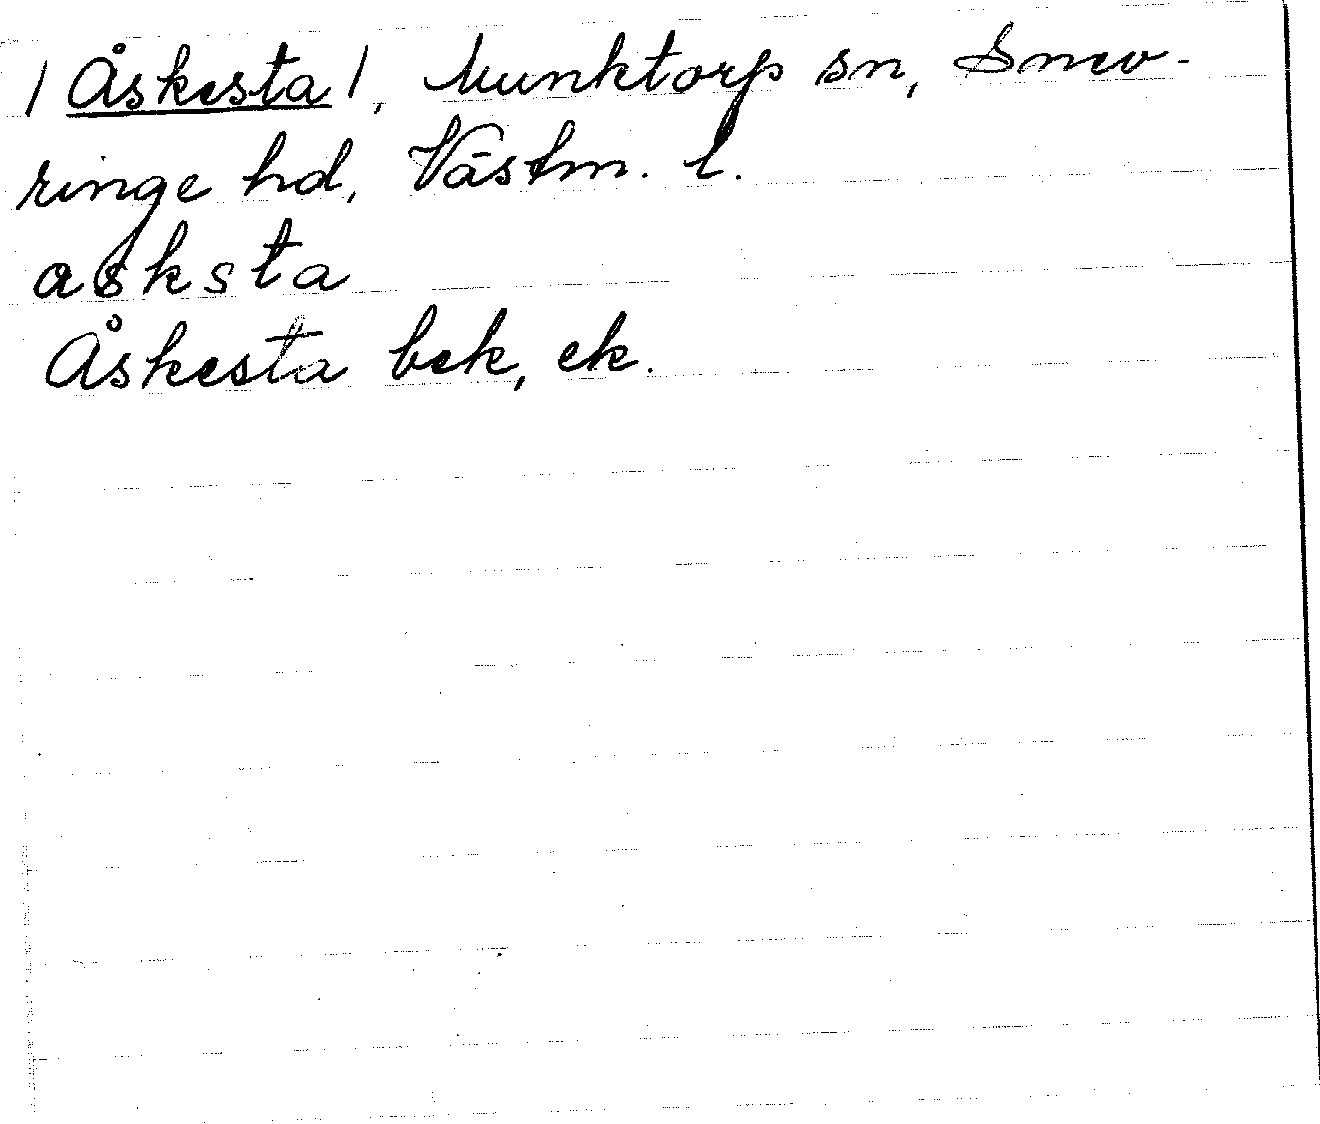 /Åskesta/, Munktorp sn, Snev-
ringe hd, Västm. l.
asksta
Åskesta bek, ek.